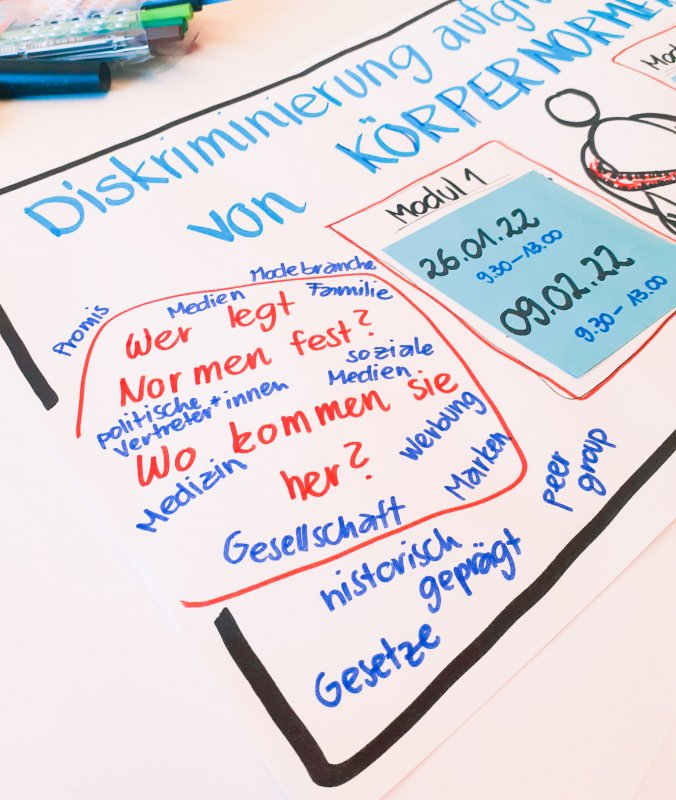 Diskriminierung aufgru
von KÖRPERNORMEN
Modul 1
26.01.22
9.30-13.00
09.02.22
9.30-13.00
Mod
Modebranche
Promis
Medien
Familie
Wer legt
Normen fest?
soziale
Medien
politische
vertreter*innen
Wo kommen sie
her?
Medizin
Werbung
Marken
peer
group
Gesellschaft
historisch
geprägt
Gesetze